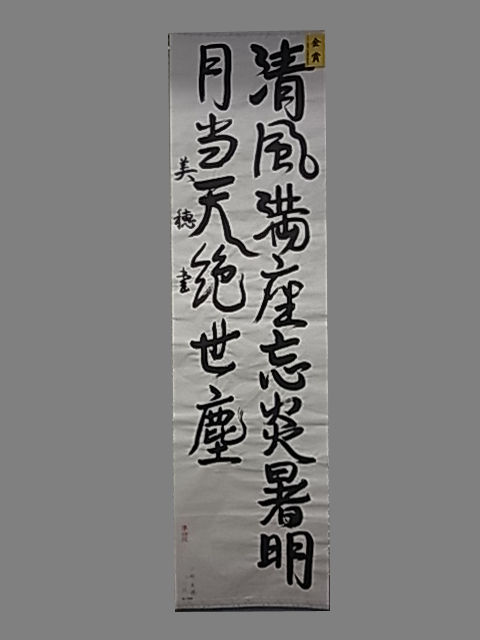 金賞
清風満座忘炎暑明
月当天絶世塵
美穂書